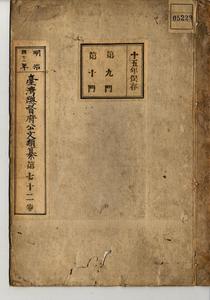 05229
十五年保存
第九門
第十門
明治
臺灣總督府公文類纂第七十二卷